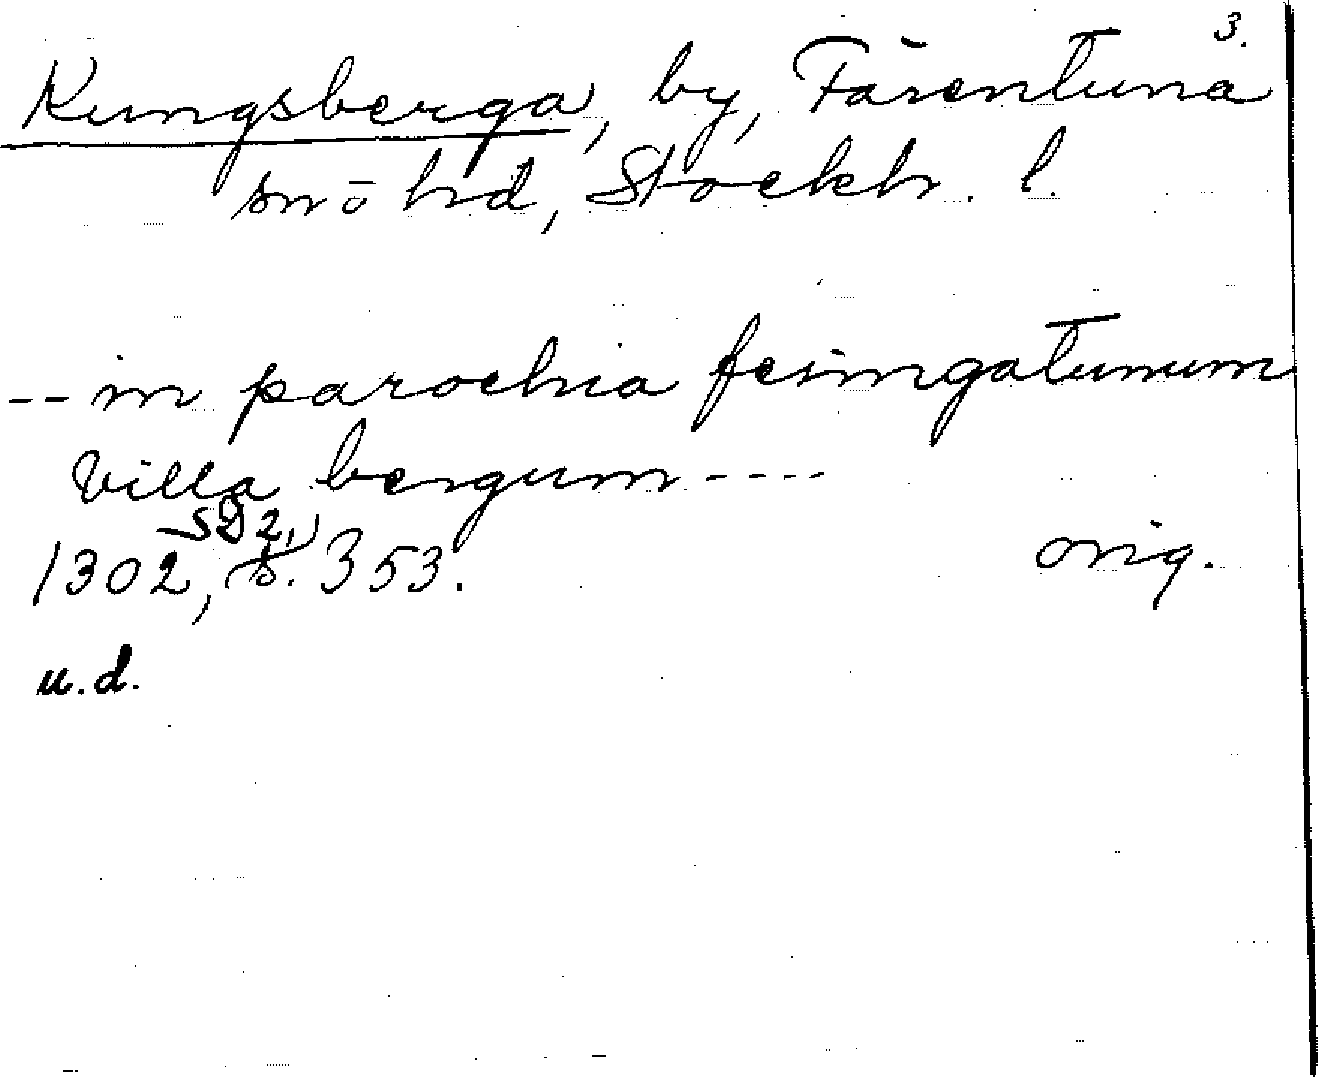 3.
Kungsberga, by, Färentuna
sn ō hd, Stockh. l.
-- in parochia feiringatunum
Villa bergum ----
SD 2,
1302, s. 353. orig.
u.d.